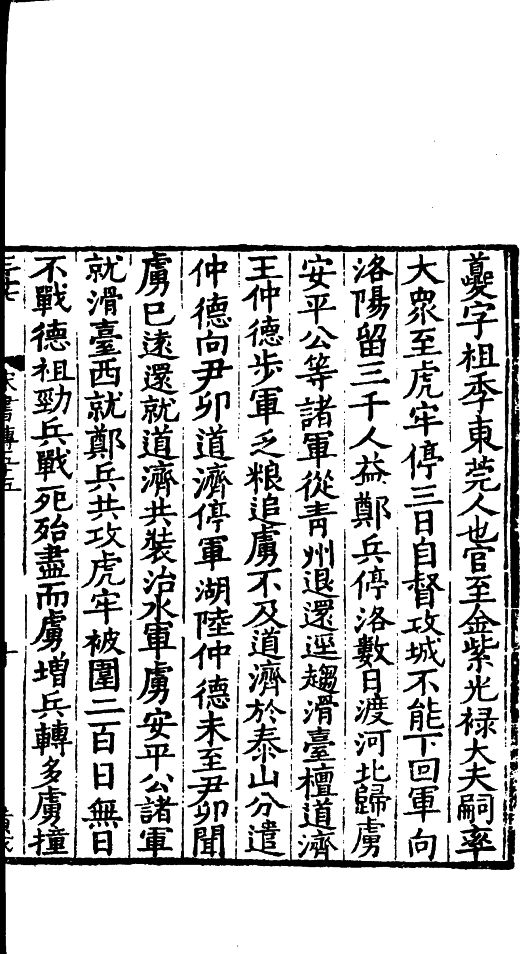 夔字祖季東莞人也官至金紫光祿大夫嗣率
大眾至虎牢停三日自督攻城不能下回軍向
洛陽留三千人益鄭兵停洛數日渡河北歸虜
安平公等諸軍從青州退還逕趨滑臺檀道濟
王仲德步軍乏粮追虜不及道濟於泰山分遣
仲德向尹卯道濟停軍湖陸仲德未至尹卯聞
虜已遠還就道濟共裝治水軍虜安平公諸軍
就滑臺西就鄭兵共攻虎牢被圍二百日無日
不戰德祖勁兵戰死殆盡而虜增兵轉多虜撞
宋書傳五十五